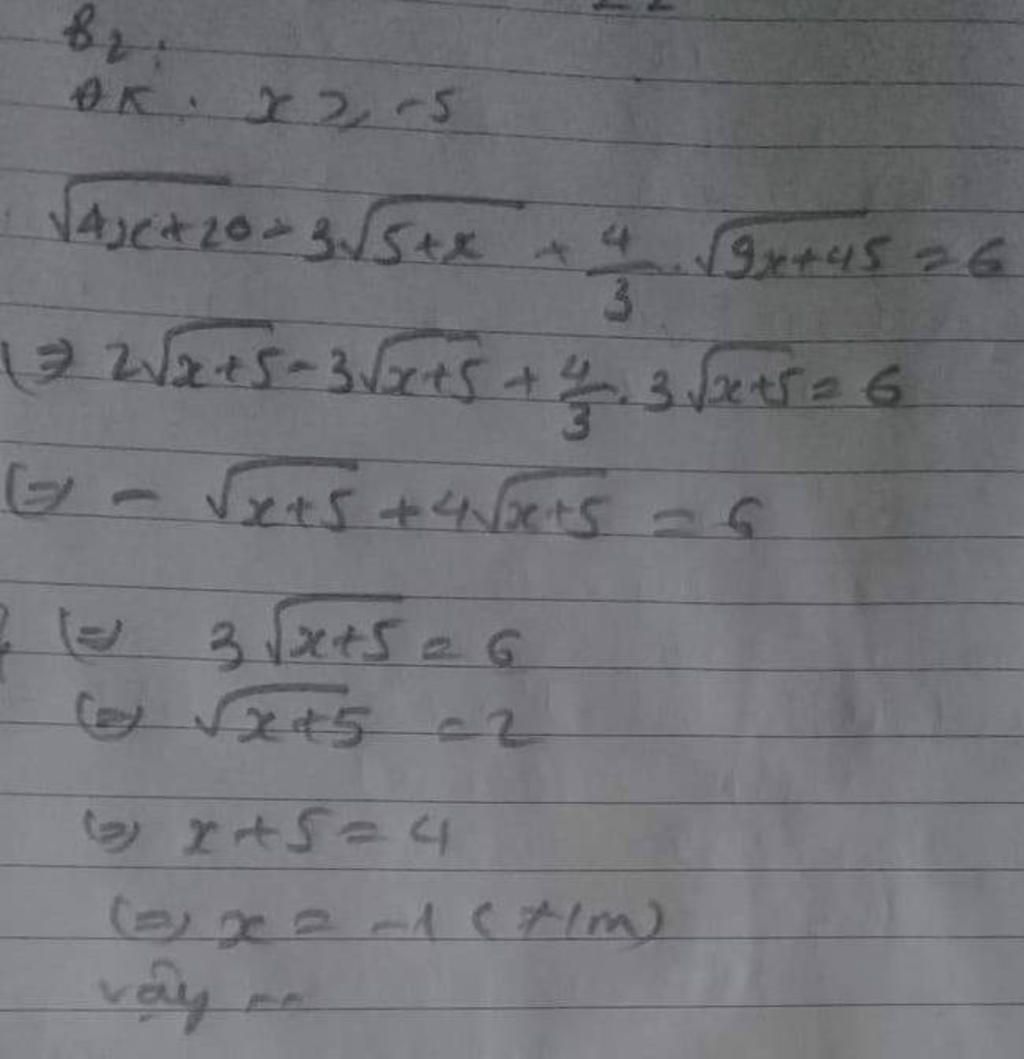 B2:
ĐK: x ≥ -5
√(4x+20) - 3√(5+x) + 4/3 . √(9x+45) = 6
(=) 2√(x+5) - 3√(x+5) + 4/3 . 3√(x+5) = 6
(=) - √(x+5) + 4√(x+5) = 6
(=) 3√(x+5) = 6
(=) √(x+5) = 2
(=) x+5 = 4
(=) x = -1 (t/m)
vậy --